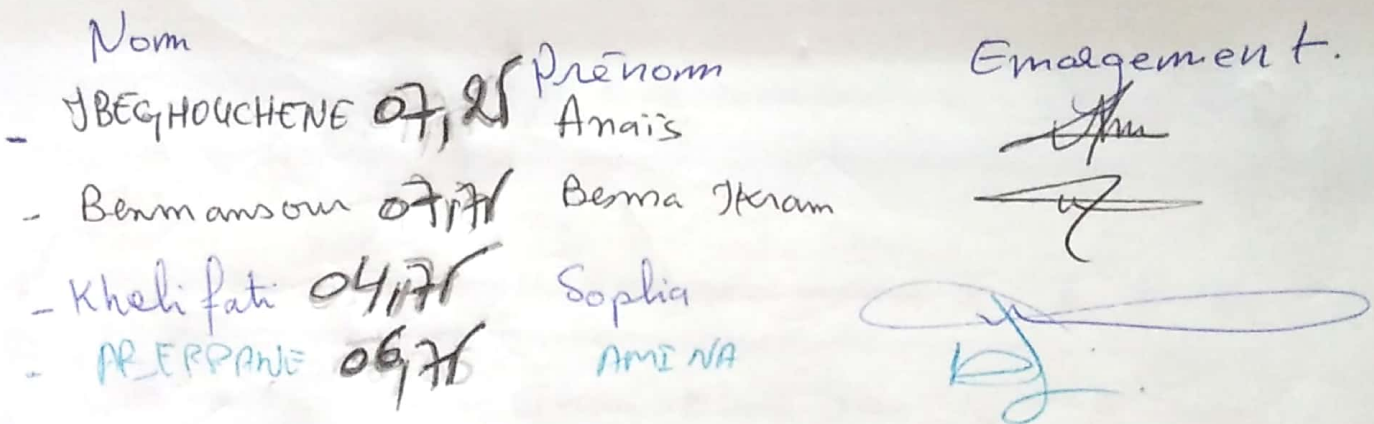 Nom Prénom Emargement.
- IBEGHOUCHENE 07,25 Anaïs
- Benmansour 07,75 Besma Ikram
- Khelifati 04,75 Sophia
- 06,75 AMINA